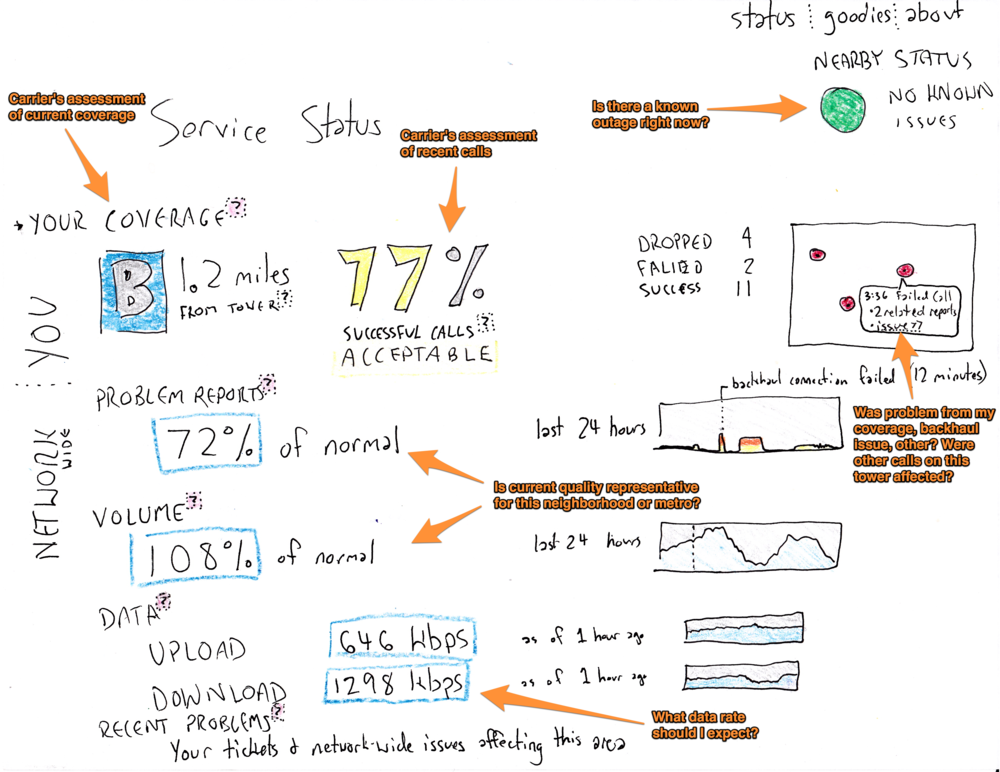 status goodies about
NEARBY STATUS
NO KNOWN
ISSUES
Is there a known
outage right now?
Carrier's assessment
of current coverage
Service Status
Carrier's assessment
of recent calls
YOUR COVERAGE ?
B
1.2 miles
FROM TOWER ?
77%
SUCCESSFUL CALLS ?
ACCEPTABLE
DROPPED 4
FALIED 2
SUCCESS 11
3:36 Failed Call
• 2 related reports
• issue??
YOU
NETWORK
WIDE
backhaul connection failed (12 minutes)
Was problem from my
coverage, backhaul
issue, other? Were
other calls on this
tower affected?
PROBLEM REPORTS ?
72% of normal
last 24 hours
Is current quality representative
for this neighborhood or metro?
VOLUME ?
108% of normal
last 24 hours
DATA ?
UPLOAD 646 kbps as of 1 hour ago
DOWNLOAD 1298 kbps as of 1 hour ago
What data rate
should I expect?
RECENT PROBLEMS ?
Your tickets & network-wide issues affecting this area